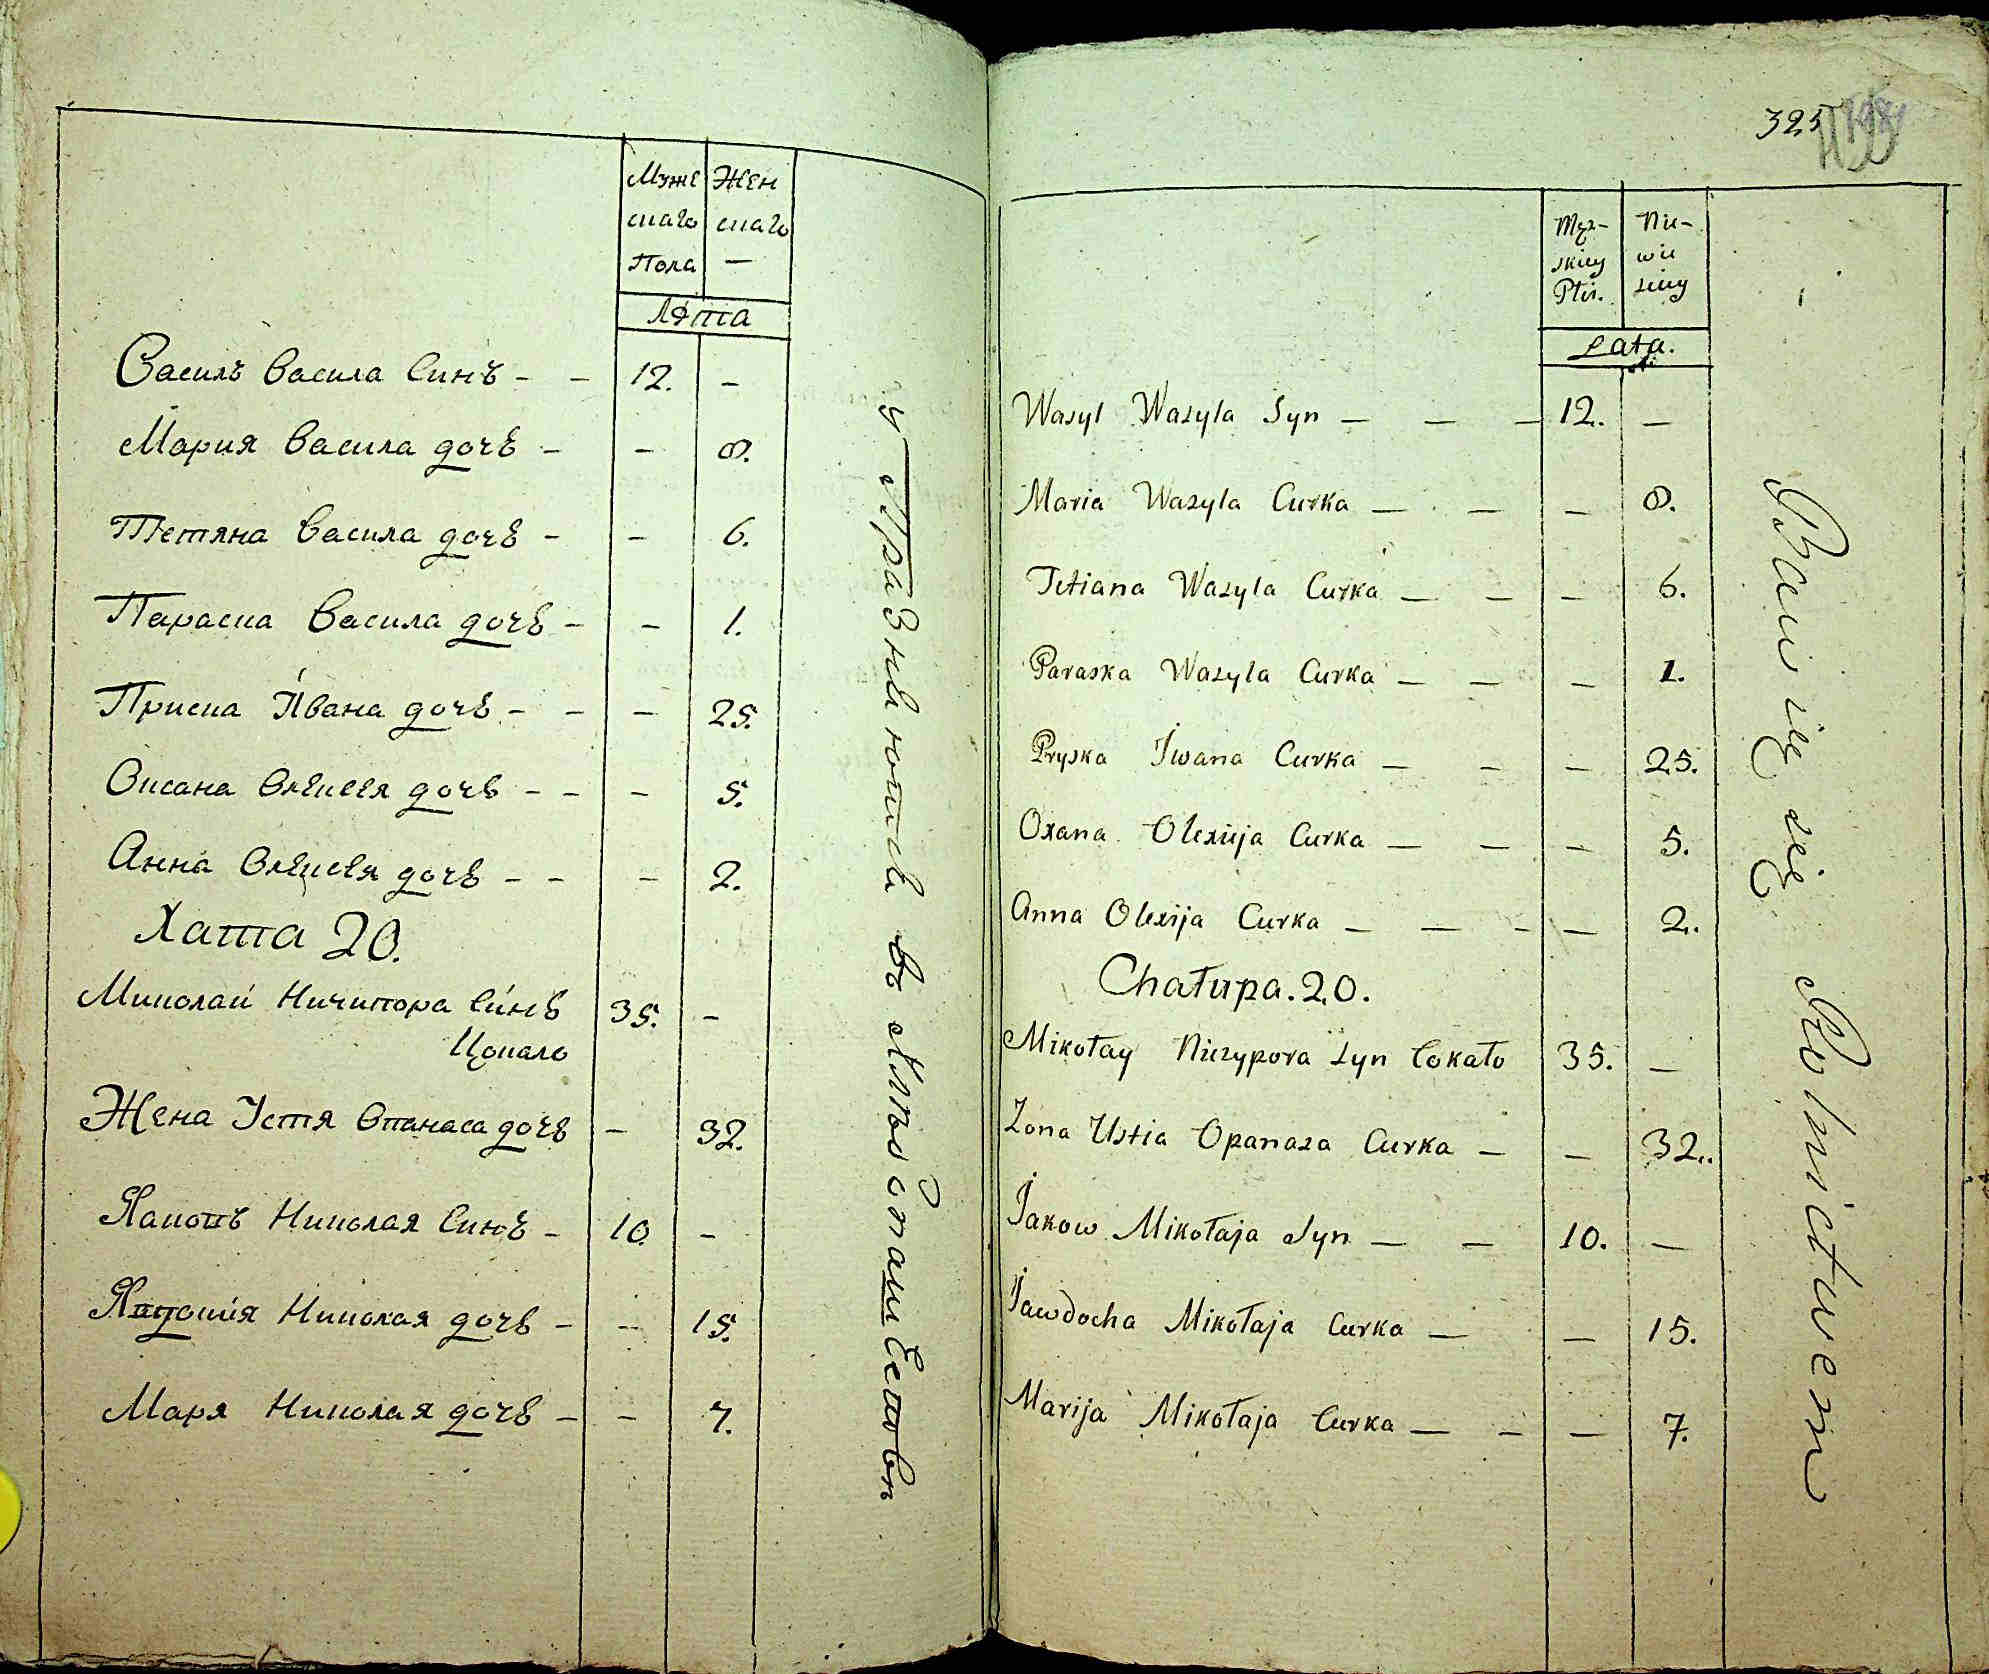 Муже Жен
скаго скаго
Пола —
Лѣта
Василъ Васила Синъ - - 12. -
Мария Васила дочь - - 8.
Тетяна Васила дочь - - 6.
Параска Васила дочь - - 1.
Приска Ивана дочь - - - 25.
Оксана Олексея дочь - - - 5.
Анна Олексея дочь - - - 2.
Хата 20.
Миколай Ничипора Синъ 35. -
Цокало
Жена Устя Опанаса дочь - 32.
Яковъ Николая Синъ - 10. -
Николая дочь - - 15.
Маря Николая дочь - - 7.
упражнѣются въ
325
Męz- Nie-
skiey wie
Płci. sciey
Lata.
Wasyl Wasyla Syn — — — 12. —
Maria Wasyla Curka — — — 8.
Tetiana Wasyla Curka — — — 6.
Paraska Wasyla Curka — — — 1.
Pryska Iwana Curka — — — 25.
Oxana Olexieja Curka — — — 5.
Anna Olexija Curka — — - — 2.
Chałupa. 20.
Mikołay Niczypora Syn Cokało 35. —
Zona Ustia Opanasa Curka — — 32.
Jakow Mikołaja Syn — — 10. —
Jawdocha Mikołaja Curka — — 15.
Marija Mikołaja Curka — — — 7.
Bawią się Rolnictwem